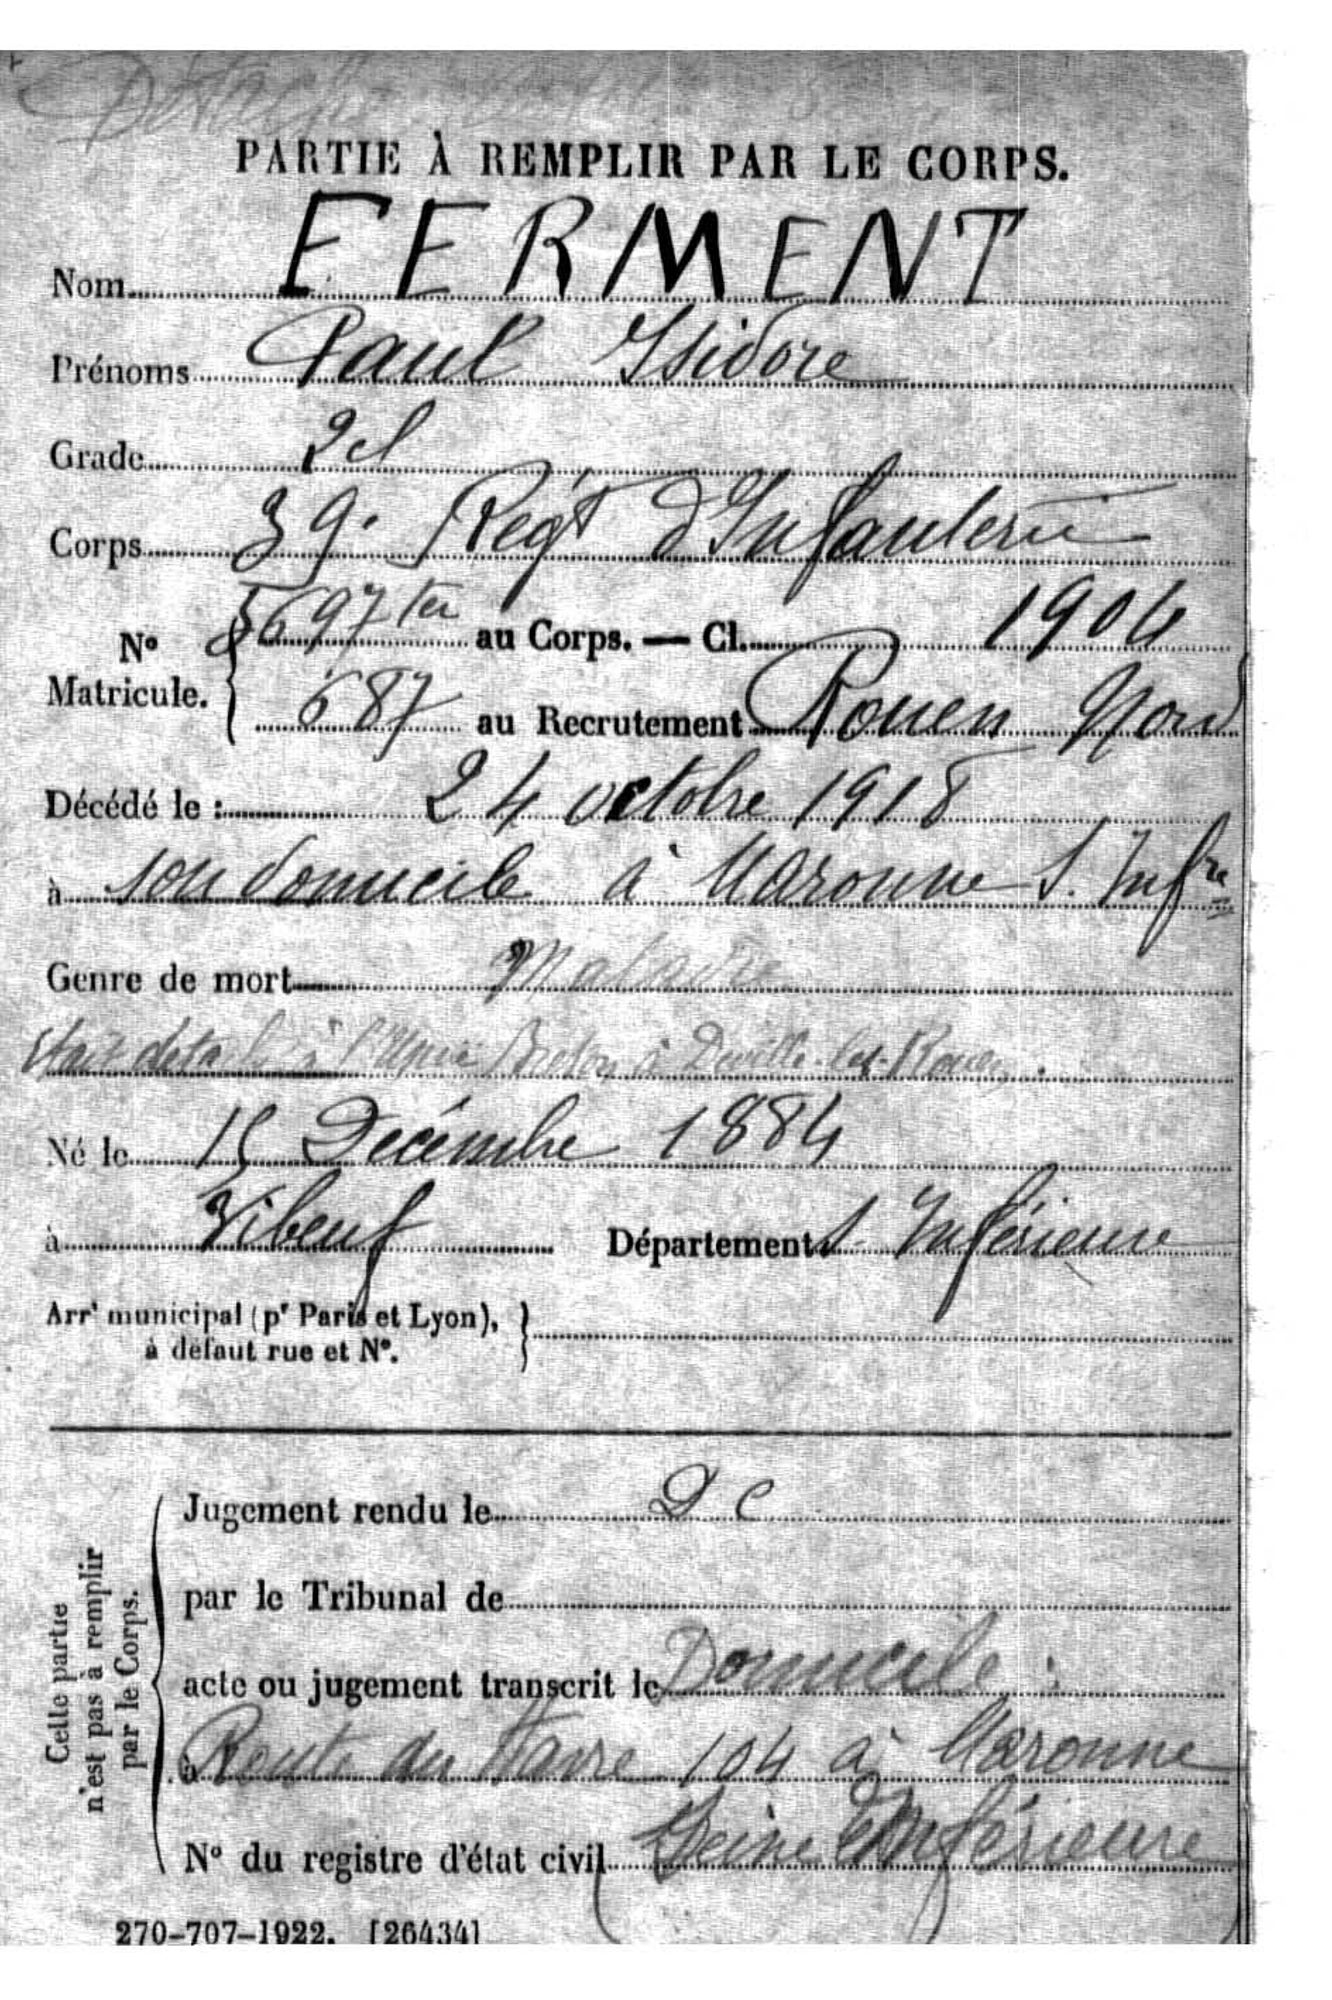 Détaché
PARTIE À REMPLIR PAR LE CORPS.
Nom FERMENT
Prénoms Paul Isidore
Grade 2 cl
Corps 39e Régt d'Infanterie
No Matricule. { 5697 ter au Corps. — Cl. 1904
687 au Recrutement Rouen Nord
Décédé le : 24 octobre 1918
à son domicile à Maromme S. Infre
Genre de mort Maladie
était détaché à l'Usine à Déville-les-Rouen.
Né le 15 Décembre 1884
à Vibeuf Département S. Inférieure
Arrt municipal (pr Paris et Lyon), }
à défaut rue et No.
Cette partie n'est pas à remplir par le Corps.
Jugement rendu le D C
par le Tribunal de
acte ou jugement transcrit le Domicile :
à Route du Havre 104 à Maromme
No du registre d'état civil Seine Inférieure
270-707-1922. [26434]